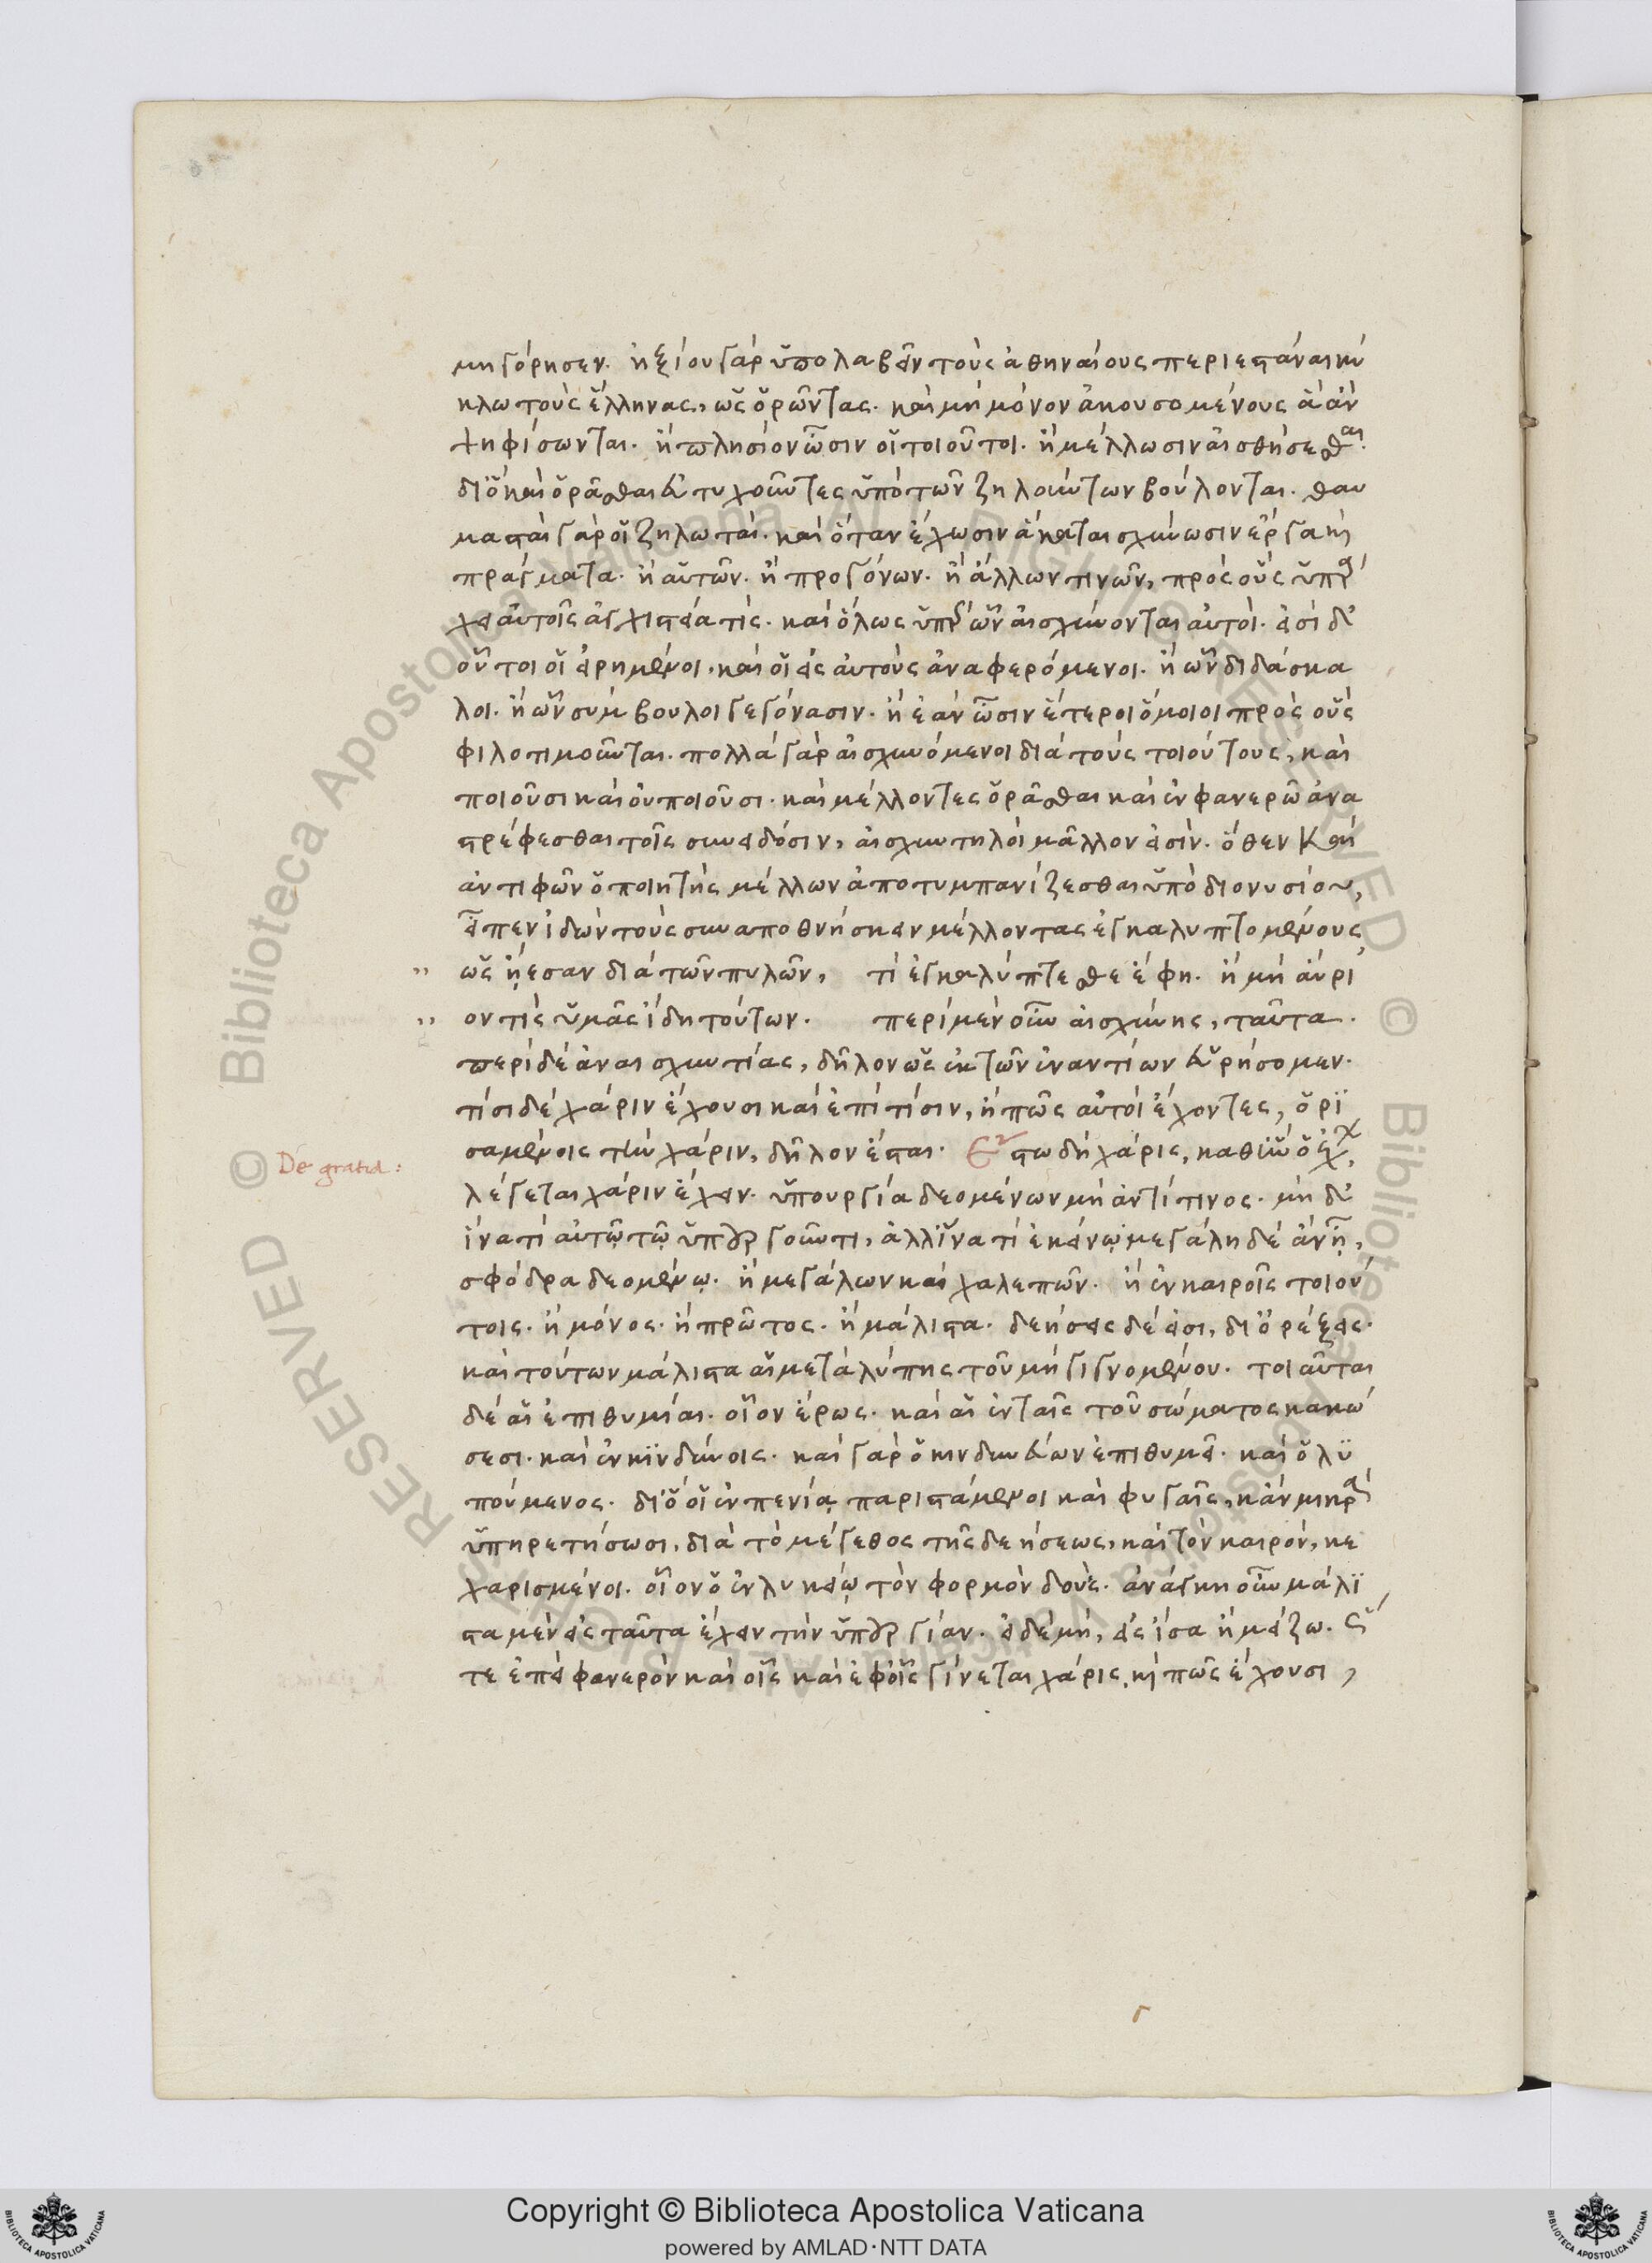 μηγόρησεν. ἠξίου γὰρ ὑπολαβεῖν τοὺς ἀθηναίους περιεστάναι κύ
κλω τοὺς ἕλληνας, ὡς ὁρῶντας. καὶ μὴ μόνον ἀκουσομένους ἃ ἂν
ψηφίσωνται. ἢ πλησίον ὦσιν οἱ τοιοῦτοι. ἢ μέλλωσιν αἰσθήσεσθαι.
διὸ καὶ ὁρᾶσθαι ἀτυχοῦντες ὑπὸ τῶν ζηλούντων βούλονται. θαυ
μασταὶ γὰρ οἱ ζηλωταί. καὶ ὅταν ἔχωσιν ἃ καταισχύνωσιν ἔργα ἢ
πράγματα. ἢ αὑτῶν. ἢ προγόνων. ἢ ἄλλων τινῶν, πρὸς οὓς ὑπάρ
χει αὐτοῖς ἀγχιστεία τίς. καὶ ὅλως ὑπὲρ ὧν αἰσχύνονται αὐτοί. εἰσὶ δ'
οὗτοι οἱ εἰρημένοι. καὶ οἱ εἰς αὐτοὺς ἀναφερόμενοι. ἢ ὧν διδάσκα
λοι. ἢ ὧν σύμβουλοι γεγόνασιν. ἢ ἐὰν ὦσιν ἕτεροι ὅμοιοι πρὸς οὓς
φιλοτιμοῦνται. πολλὰ γὰρ αἰσχυνόμενοι διὰ τοὺς τοιούτους, καὶ
ποιοῦσι καὶ οὐ ποιοῦσι. καὶ μέλλοντες ὁρᾶσθαι καὶ ἐν φανερῶ ἀνα
στρέφεσθαι τοῖς συνειδόσιν, αἰσχυντηλοὶ μᾶλλον εἰσίν. ὅθεν καὶ
ἀντιφῶν ὁ ποιητὴς μέλλων ἀποτυμπανίζεσθαι ὑπὸ διονυσίου,
εἶπεν ἰδὼν τοὺς συναποθνήσκειν μέλλοντας ἐγκαλυπτομένους
" ὡς ᾔεσαν διὰ τῶν πυλῶν, τί ἐγκαλύπτεσθε ἔφη. ἢ μὴ αὔρι
" ον τὶς ὑμᾶς ἴδη τούτων. περὶ μὲν οὖν αἰσχύνης, ταῦτα.
περὶ δὲ ἀναισχυντίας, δῆλον ὡς ἐκ τῶν ἐναντίων εὑρήσομεν.
τίσι δὲ χάριν ἔχουσι καὶ ἐπὶ τίσιν, ἢ πῶς αὐτοὶ ἔχοντες, ὁρι
σαμένοις τὴν χάριν, δῆλον ἔσται. Ἔστω δὴ χάρις, καθ' ἣν ὁ ἔχ,
De gratia:
λέγεται χάριν ἔχειν. ὑπουργία δεομένων μὴ ἀντί τινος. μηδ'
ἵνα τὶ αὐτῷ τῷ ὑπουργοῦντι, ἀλλ' ἵνα τὶ ἐκείνῳ μεγάλη δὲ ἂν ᾖ,
σφόδρα δεομένῳ. ἢ μεγάλων καὶ χαλεπῶν. ἢ ἐν καιροῖς τοιού
τοις. ἢ μόνος. ἢ πρῶτος. ἢ μάλιστα. δεήσεις δέ εἰσι, δι' ὀρέξεις.
καὶ τούτων μάλιστα αἱ μετὰ λύπης τοῦ μὴ γιγνομένου. τοιαῦται
δὲ αἱ ἐπιθυμίαι. οἷον ἔρως. καὶ αἱ ἐν ταῖς τοῦ σώματος κακώ
σεσι. καὶ ἐν κινδύνοις. καὶ γὰρ ὁ κινδυνεύων ἐπιθυμεῖ. καὶ ὁ λυ
πούμενος. διὸ οἱ ἐν πενίᾳ παριστάμενοι καὶ φυγαῖς, κἂν μικρὰ
ὑπηρετήσωσι, διὰ τὸ μέγεθος τῆς δεήσεως, καὶ τὸν καιρὸν, κε
χαρισμένοι. οἷον ὁ ἐν λυκείῳ τὸν φορμὸν δούς. ἀνάγκη οὖν μάλι
στα μὲν εἰς ταῦτα ἔχειν τὴν ὑπουργίαν. εἰ δὲ μὴ, εἰς ἴσα ἢ μείζω. ὥς
τε ἐπεὶ φανερὸν καὶ οἷς καὶ ἐφ' οἷς γίνεται χάρις, καὶ πῶς ἔχουσι,
Copyright © Biblioteca Apostolica Vaticana
powered by AMLAD·NTT DATA